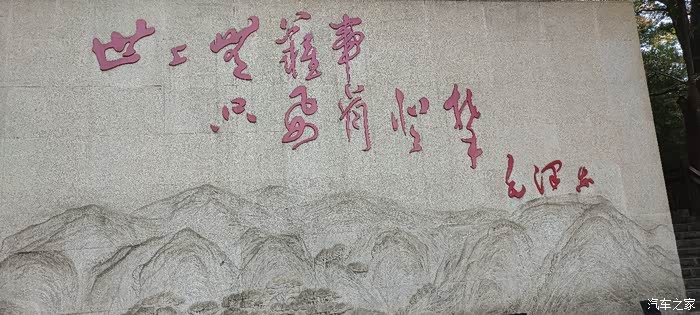 世上无难事
只要肯登攀
毛泽东
汽车之家